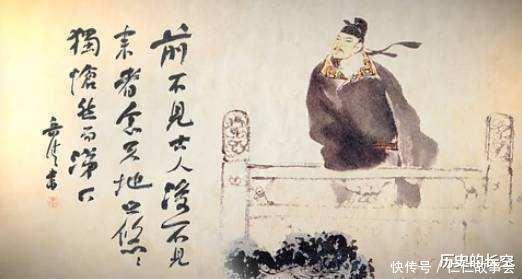 前不見古人後不見
来者念天地之悠〻
獨愴然而涕下
历史的长空
快传号 / 仁仁故事会